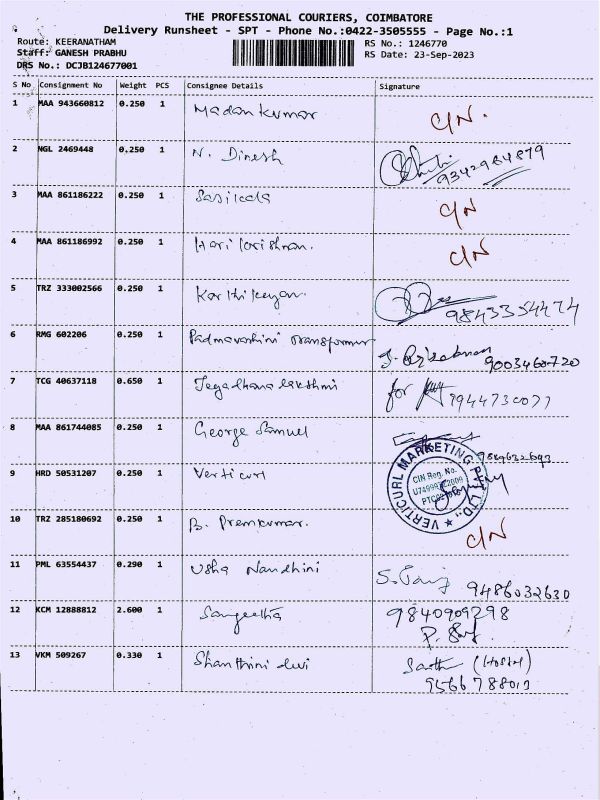 THE PROFESSIONAL COURIERS, COIMBATORE
Delivery Runsheet - SPT - Phone No.:0422-3505555 - Page No.:1
Route: KEERANATHAM RS No.: 1246770
Staff: GANESH PRABHU RS Date: 23-Sep-2023
DRS No.: DCJB124677001
S No Consignment No Weight PCS Consignee Details Signature
1 MAA 943660812 0.250 1 Madan kumar C/N.
2 NGL 2469448 0.250 1 N. Dinesh 9342984879
3 MAA 861186222 0.250 1 Sasikala C/N
4 MAA 861186992 0.250 1 Hari krishnan. C/N
5 TRZ 333002566 0.250 1 Karthikeyan. 9843354474
6 RMG 602206 0.250 1 Padmavathini transformer 9003460720
7 TCG 40637118 0.650 1 Jegadhanalakshmi for 9944730077
8 MAA 861744085 0.250 1 George Samuel 9894632693
9 HRD 50531207 0.250 1 Verticurl
VERTICURL MARKETING PVT. LTD.,
CIN Reg. No.
10 TRZ 285180692 0.250 1 B. Premkumar. C/N
11 PML 63554437 0.290 1 Usha Nandhini 9486032630
12 KCM 12888812 2.600 1 Sangeetha 9840909298
13 VKM 509267 0.330 1 Shanthini devi